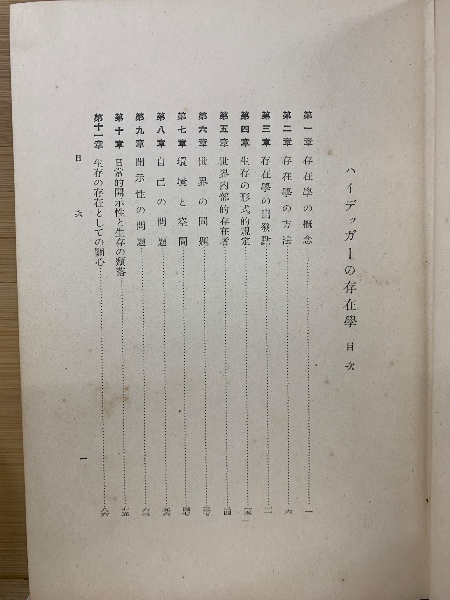 ハイデッガーの存在學 目次
第一章 存在學の概念 一
第二章 存在學の方法 六
第三章 存在學の出發點
第四章 生存の形式的規定
第五章 世界内部的存在者
第六章 世界の問題
第七章 環境と空間
第八章 自己の問題
第九章 開示性の問題
第十章 日常的開示性と生存の頽落
第十一章 生存の存在としての關心
目次 一